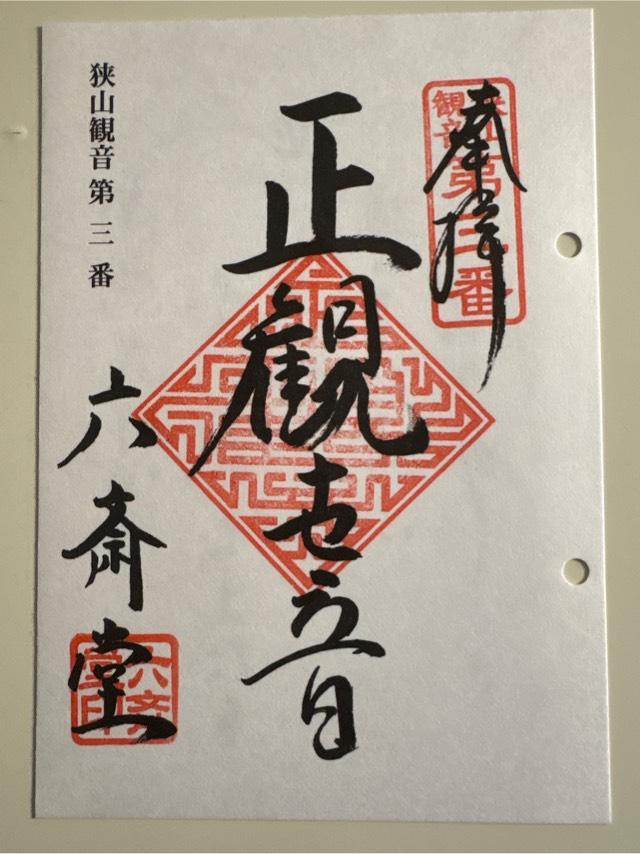 奉拝
狭山
観音
第三番
正観世音
狭山観音第三番
六斎堂
六斉
堂印